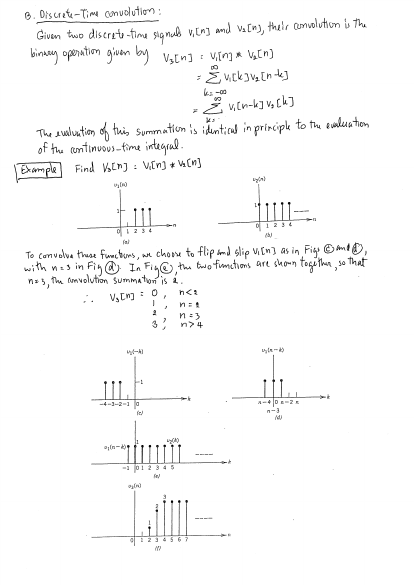 B. Discrete-Time convolution:
Given two discrete-time signals V₁[n] and V₂[n], their convolution is the
binary operation given by V₃[n] = V₁[n] * V₂[n]
= ∑ V₁[k] V₂[n-k]
k=-∞
= ∑ V₁[n-k] V₂[k]
The evaluation of this summation is identical in principle to the evaluation
of the continuous-time integral.
Example Find V₃[n] = V₁[n] * V₂[n]
v₁(n) v₂(n)
1 1
0 1 2 3 4 n 0 1 2 3 4 n
(a) (b)
To convolve these functions, we choose to flip and slip V₁[n] as in Figs (c) and (d),
with n=3 in Fig (d). In Fig (e), the two functions are shown together, so that
n=3, the convolution summation is 2.
∴ V₃[n] = 0, n<2
1, n=2
2, n=3
3, n>4
v₁(-k) v₁(n-k)
1
-4 -3 -2 -1 0 k n-4 0 n-2 n k
n-3
(c) (d)
v₁(n-k) 1 v₂(k)
-1 0 1 2 3 4 5 k
(e)
v₃(n)
3
2
1
0 1 2 3 4 5 6 7 n
(f)